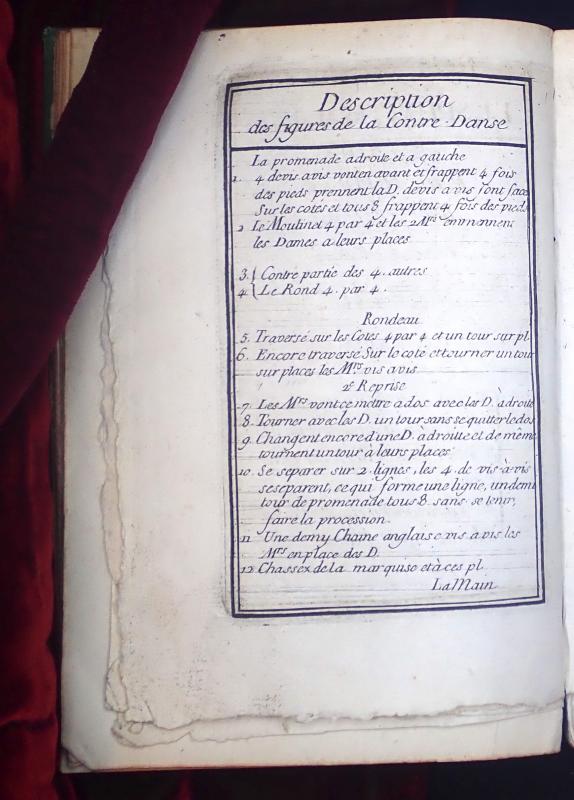 Description
des figures de la Contre-Danse
La promenade a droite et a gauche
1. 4 devis avis vont en avant et frappent 4 fois
des pieds prennent la D. devis a vis font face
Sur les cotés et tous 8 frappent 4 fois des pieds
2 Le Moulinet 4 par 4 et les 2 Mrs emmennent
les Dames a leurs places
3. { Contre partie des 4. autres
4. { Le Rond 4. par 4.
Rondeau
5. Traversé sur les Cotes 4 par 4 et un tour sur pl.
6. Encore traversé Sur le coté et tourner un tour
sur places les Mrs vis avis
2e Reprise
7. Les Mrs vont ce mettre a dos avec les D. à droite
8. Tourner avec les D. un tour sans se quitter le dos
9. Changent encore d'une D. à droitte et de même
tournent un tour à leurs places
10. Se separer sur 2 lignes, les 4. de vis-à-vis
se separent, ce qui forme une ligne, un demi
tour de promenade tous 8. sans se tenir,
faire la procession.
11 Une demy Chaine anglaise vis a vis les
Mrs en place des D.
12. Chassex de la marquise et à ces pl.
La Main